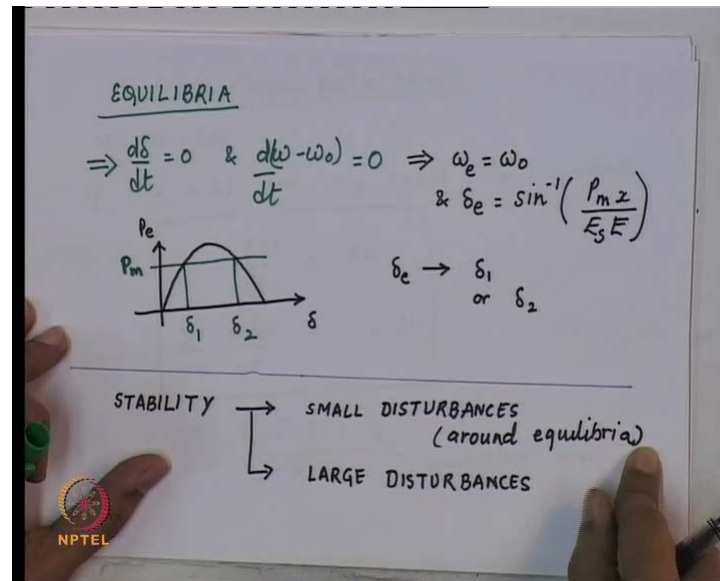 EQUILIBRIA
⇒ dδ/dt = 0 & d(ω-ω₀)/dt = 0 ⇒ ωₑ = ω₀
& δₑ = sin⁻¹(Pₘ x / Eₛ E)
Pₑ
Pₘ
δₑ → δ₁
or δ₂
δ₁ δ₂ δ
STABILITY → SMALL DISTURBANCES
(around equilibria)
→ LARGE DISTURBANCES
NPTEL